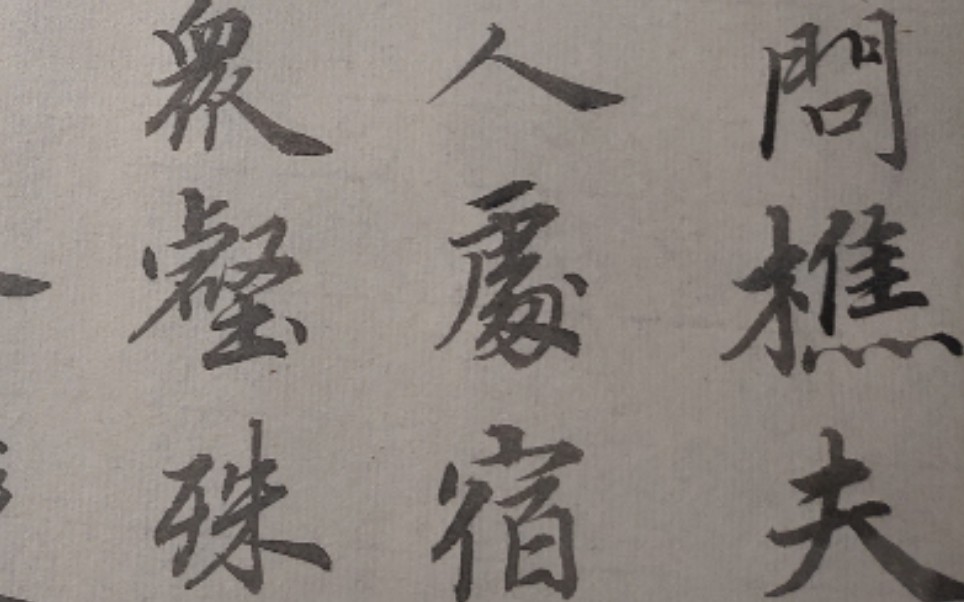 問樵夫
人處宿
衆壑殊